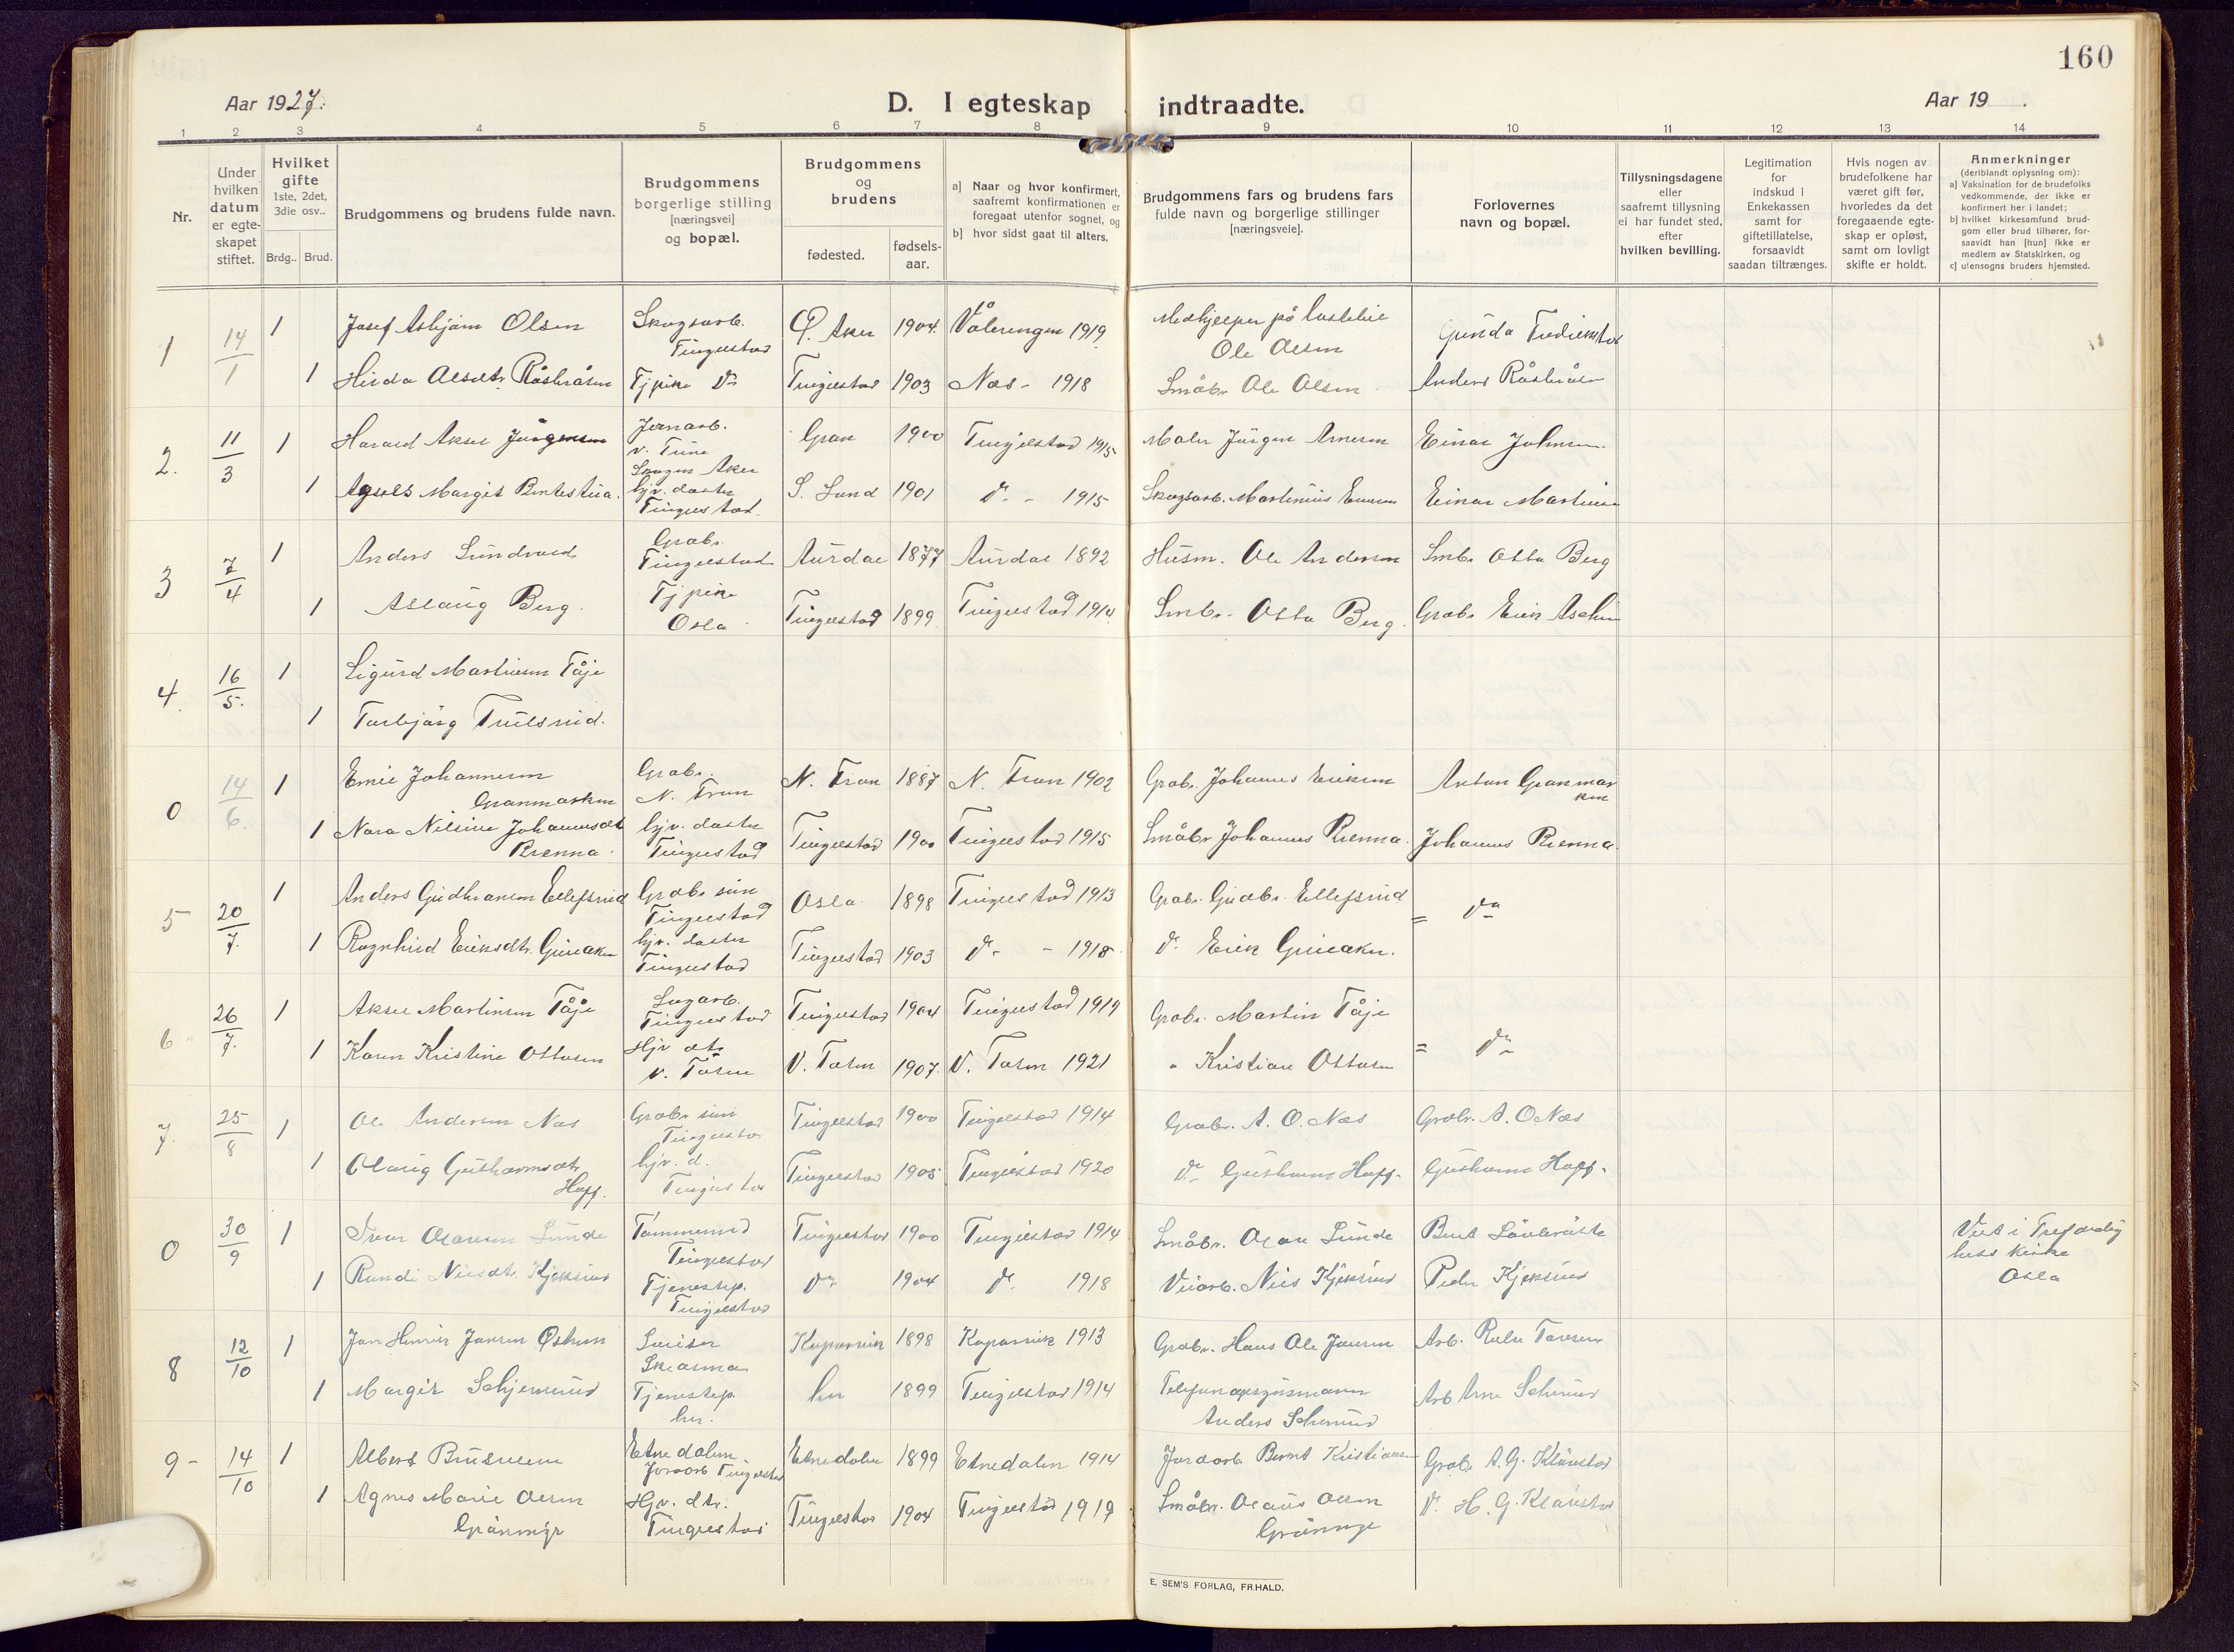 160
Aar 1927.
D. I egteskap indtraadte.
Aar 19 .
1 2 3 4 5 6 7 8 9 10 11 12 13 14
Nr.
Under
hvilken
datum
er egte-
skapet
stiftet.
Hvilket
gifte
1ste, 2det,
3die osv..
Brdg.. Brud.
Brudgommens og brudens fulde navn.
Brudgommens
borgerlige stilling
[næringsvei]
og bopæl.
Brudgommens
og
brudens
fødested.
fødsels-
aar.
a] Naar og hvor konfirmert,
saafremt konfirmationen er
foregaat utenfor sognet, og
b] hvor sidst gaat til alters.
Brudgommens fars og brudens fars
fulde navn og borgerlige stillinger
[næringsveie].
Forlovernes
navn og bopæl.
Tillysningsdagene
eller
saafremt tillysning
ei har fundet sted,
efter
hvilken bevilling.
Legitimation
for
indskud i
Enkekassen
samt for
giftetillatelse,
forsaavidt
saadan tiltrænges.
Hvis nogen av
brudefolkene har
været gift før,
hvorledes da det
foregaaende egte-
skap er opløst,
samt om lovligt
skifte er holdt.
Anmerkninger
(deriblandt oplysning om):
a] Vaksination for de brudefolks
vedkommende, der ikke er
konfirmert her i landet;
b] hvilket kirkesamfund brud-
gom eller brud tilhører, for-
saavidt han [hun] ikke er
medlem av Statskirken, og
c] utensogns bruders hjemsted.
1 14/1 1 Josef Asbjørn Olsen Skogsarb. Tingelstad Ø. Aker 1904 Vålerengen 1919 Ole Olsen Gunda
1 Hilda Olsdtr. Tjpike do Tingelstad 1903 Næs - 1918 Småbr. Ole Olsen Anders
2. 11/3 1 Harald Aksel Jørgensen Jernarb. v. Tune Gran 1900 Tingelstad 1915 Maler Jørgen Arnesen Einar Johnsen
Skogen Aker
1 Margit hjv. datter Tingelstad S. Land 1901 do - 1915 Skogsarb. Martinius Einar
3 7/4 1 Anders Sundvold Grabr. Tingelstad Aurdal 1877 Aurdal 1892 Husm. Ole Andersen Smbr. Otto Berg
1 Aslaug Berg. Tjpike Oslo Tingelstad 1899 Tingelstad 1914 Smbr. Otto Berg. Grabr. Erik
4. 16/5. 1 Sigurd Martinsen Tåje
1 Torbjørg Trulsrud.
0 14/6. 1 Emil Johannesen Granmarken Grabr. N. Fron N. Fron 1887 N. Fron 1902 Grabr. Johannes Eriksen Anton Granmarken
1 Nora Nilsine Johannesdt. Brenna hjv. datter Tingelstad Tingelstad 1900 Tingelstad 1915 Småbr. Johannes Brenna. Johannes Brenna.
5 20/7. 1 Anders Gudbransen Ellefsrud Grabr. søn Tingelstad Oslo 1898 Tingelstad 1913 Grabr. Gudbr. Ellefsrud = do
1 Ragnhild Eriksdtr. Grinaker hjv. datter Tingelstad Tingelstad 1903 do - 1918 do Erik Grinaker.
6 26/7. 1 Aksel Martinsen Tåje Sagarb. Tingelstad Tingelstad 1904 Tingelstad 1919 Grabr. Martin Tåje = do
1 Karen Kristine Ottosen Hjv dtr V. Toten V. Toten 1907. V. Toten 1921 " Kristian Ottosen
7. 25/8 1 Ole Andersen Næs Grabr. søn Tingelstad Tingelstad 1900 Tingelstad 1914 Grabr. A. O. Næs Grabr. A. O Næs
1 Olaug Guthormsdtr Hoff. hjv. d. Tingelstad Tingelstad 1905 Tingelstad 1920 do Guthorm Hoff. Guthorm Hoff.
0 30/9 1 Ivar Olavsen Lunde Tømmermd Tingelstad Tingelstad 1900 Tingelstad 1914 Småbr. Olav Lunde Berit
1 Randi Nilsdtr. Kjeksrud Tjenestep. Tingelstad do 1904 do 1918 Veiarb. Nils Kjeksrud Peder Kjeksrud
Viet i Trefoldighets kirke Oslo
8 12/10 1 Jan Henrik Jansen 1898 1913 Grabr. Hans Ole Jansen Arb.
1 Margit Schjerverud Tjenestep. her. her 1899 Tingelstad 1914 Anders Arb Arne
9 - 14/10 1 Albert Etnedalen Jordarb Tingelstad Etnedalen 1899 Etnedalen 1914 Jordarb. Bernt Kristiansen Grabr. A. G. Kløvstad
1 Agnes Marie Olsen Grønmyr Hjv. dtr. Tingelstad Tingelstad 1904 Tingelstad 1919 Småbr. Olaus Olsen do H. G. Kløvstad
E. SEM'S FORLAG, FR.HALD.